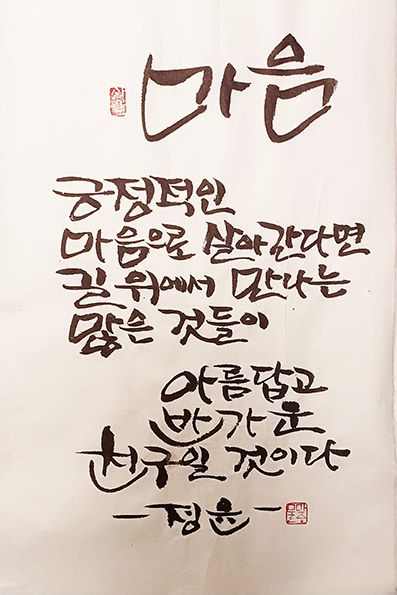 마음
긍정적인
마음으로 살아간다면
길 위에서 만나는
많은 것들이
아름답고
반가운
친구일 것이다
-정윤-